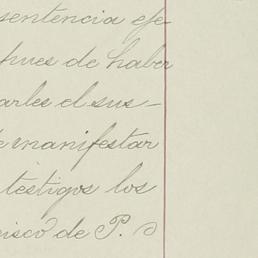 sentencia eje
pues de haber
arles el sus-
e manifestar
testigos los
cisco de P. S